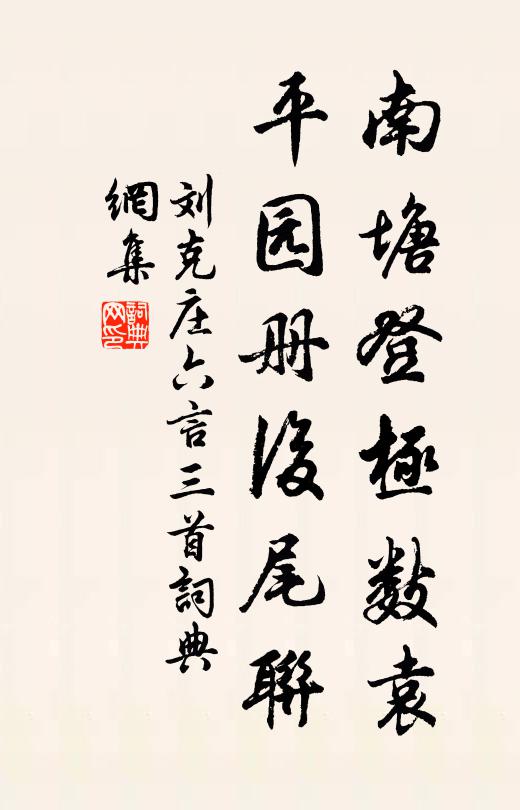 南塘登極數袁
平园册後尾聯
刘克庄六言三首詞典
網集
詞典
网印